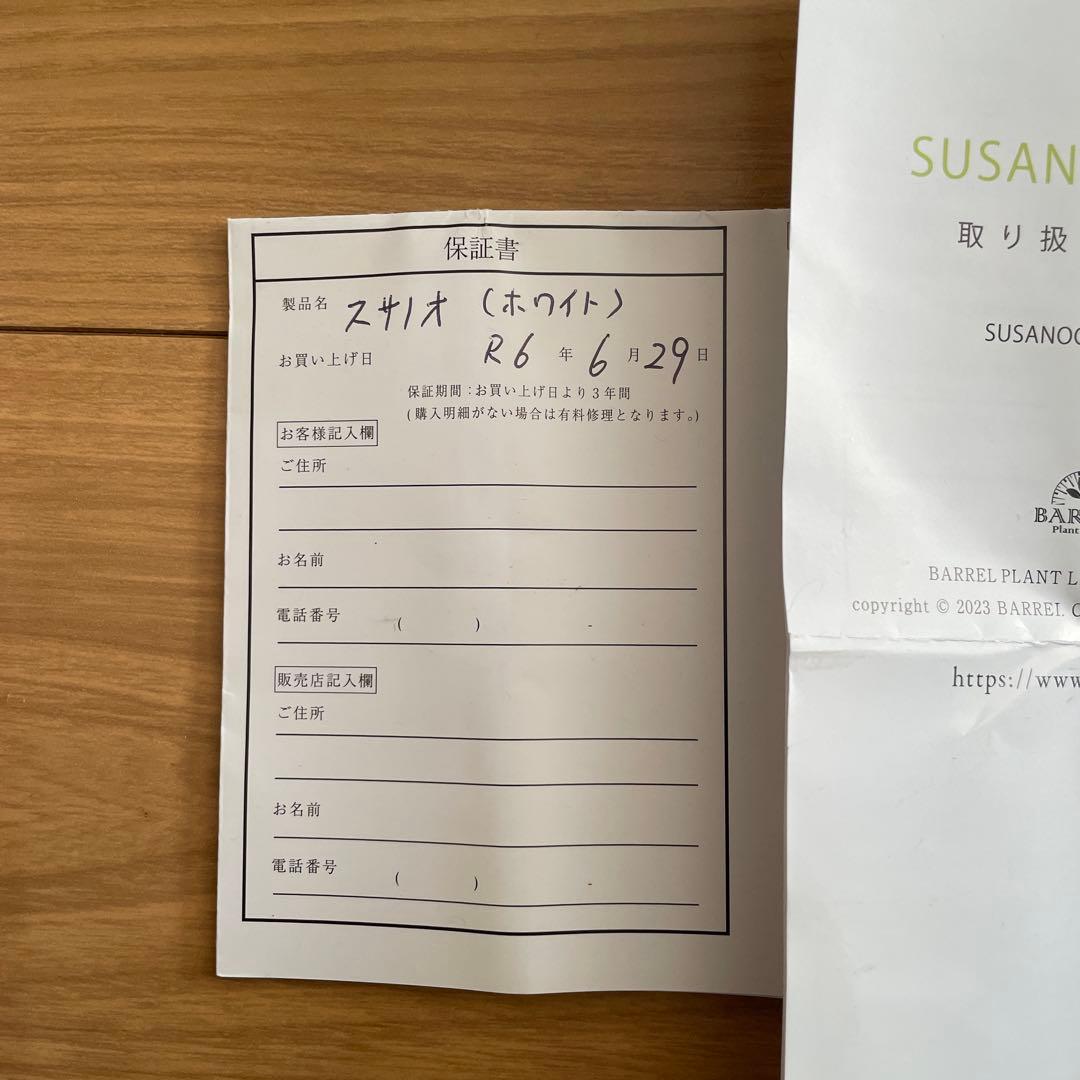 保証書
製品名 スサノオ (ホワイト)
お買い上げ日 R6 年 6 月 29 日
保証期間：お買い上げ日より3年間
(購入明細がない場合は有料修理となります。)
お客様記入欄
ご住所
お名前
電話番号 ( ) -
販売店記入欄
ご住所
お名前
電話番号 ( ) -
SUSAN
取り扱
SUSANOO
BAR
Plant
BARREL PLANT L
copyright © 2023 BARREL. C
https://www.